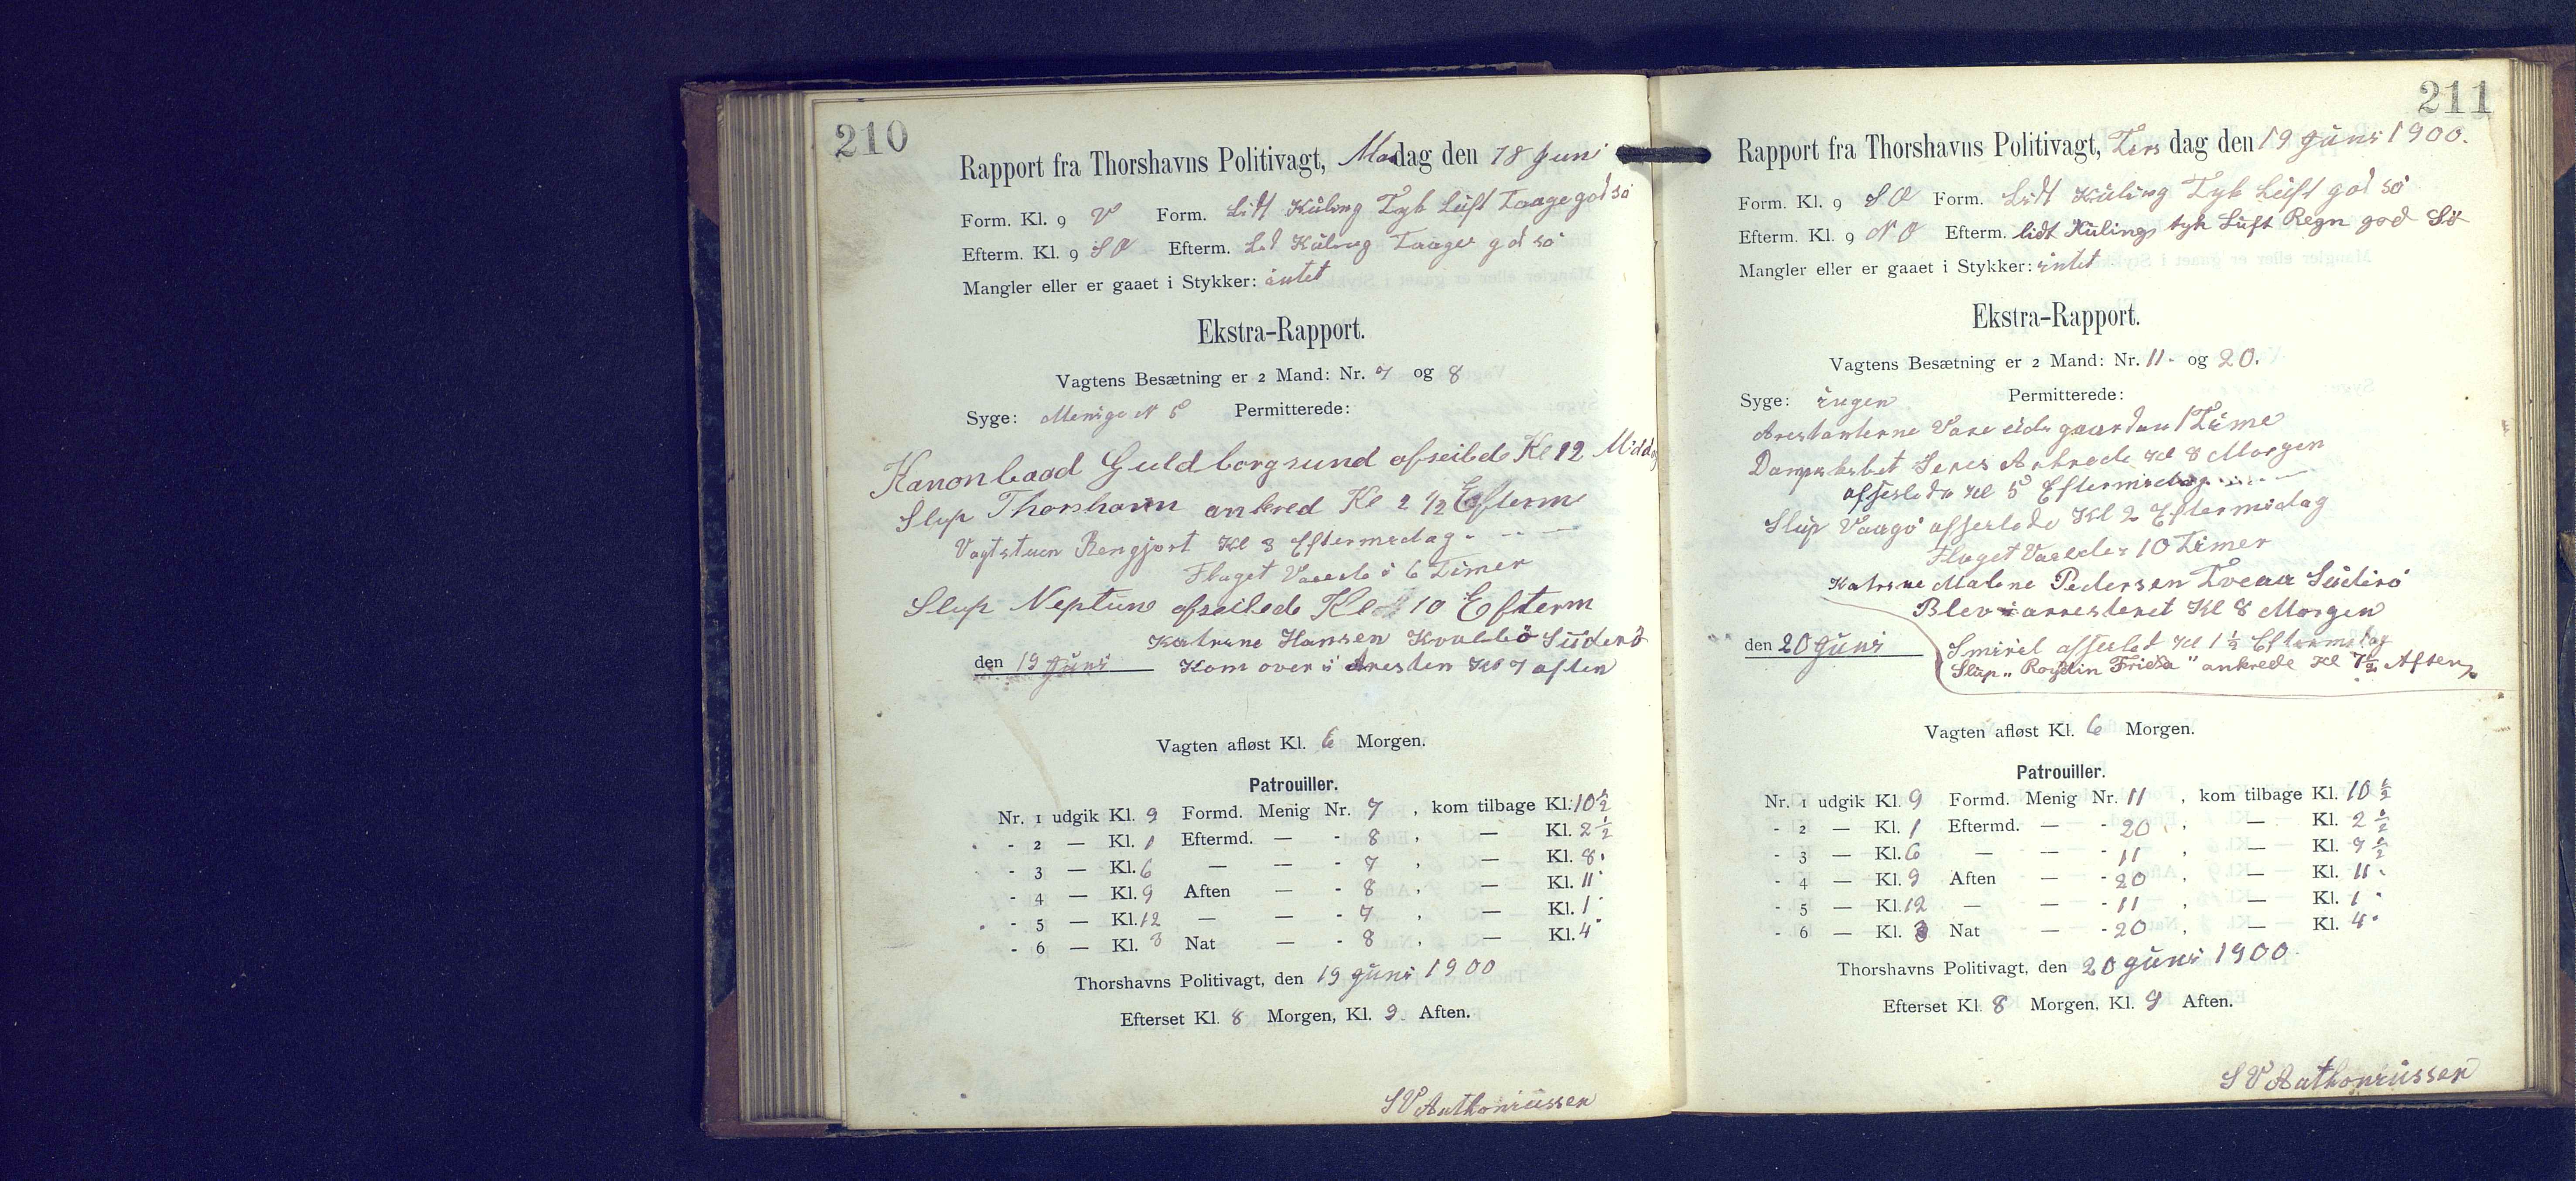 210
Rapport fra Thorshavns Politivagt, Mandag den 18 Juni
Form. Kl. 9 V Form. Lidt Kuling Tyk Luft Taage god sø
Efterm. Kl. 9 SV Efterm. Lidt Kuling Taage god sø
Mangler eller er gaaet i Stykker: intet
Ekstra-Rapport.
Vagtens Besætning er 2 Mand: Nr. 7 og 8
Syge: Menige N 5 Permitterede:
Kanonbaad Guldborgsund afseilede Kl 12 Midda
Slup Thorshavn ankred Kl 2 1/2 Efterm
Vagtstuen Rengjort Kl 3 Eftermedag
Flaget 6 Timer
Slup Neptun afseilede Kl 10 Efterm
Katrine Hansen Kvalbø Süderø
den 19 Juni Kom over i Aresten Kl 7 aften
Vagten afløst Kl. 6 Morgen.
Patrouiller.
Nr. 1 udgik Kl. 9 Formd. Menig Nr. 7 , kom tilbage Kl. 10 1/2
- 2 — Kl. 1 Eftermd. — - 8 , — Kl. 2 1/2
- 3 — Kl. 6 — — - 7 , — Kl. 8
- 4 — Kl. 9 Aften — - 8 , — Kl. 11
- 5 — Kl. 12 — — - 7 , — Kl. 1
- 6 — Kl. 3 Nat — - 8 , — Kl. 4
Thorshavns Politivagt, den 19 Juni 1900
Efterset Kl. 8 Morgen, Kl. 9 Aften.
S V Anthoniussen
211
Rapport fra Thorshavns Politivagt, Tirsdag den 19 Juni 1900.
Form. Kl. 9 SO Form. Lidt Kuling Tyk Luft god sø
Efterm. Kl. 9 NO Efterm. lidt Kuling tyk Luft Regn god Sø
Mangler eller er gaaet i Stykker: intet
Ekstra-Rapport.
Vagtens Besætning er 2 Mand: Nr. 11 og 20.
Syge: ingen Permitterede:
Arestanterne Vare i gaarden 1 Time
Dampskibet Seres Ankrede Kl 8 Morgen
afseilede Kl 5 Eftermidag
Slup Vaagø afseilede Kl 2 Eftermidag
Flaget 10 Timer
Katrine Malene Pedersen Tveraa Süderø
Blev arresteret Kl 8 Morgen
den 20 Juni Smiril afseilet Kl 1 1/2 Eftermidag
Slup „ Frida" ankrede Kl 7 1/2 Aften
Vagten afløst Kl. 6 Morgen.
Patrouiller.
Nr. 1 udgik Kl. 9 Formd. Menig Nr. 11 , kom tilbage Kl. 10 1/2
- 2 — Kl. 1 Eftermd. — - 20 , — Kl. 2 1/2
- 3 — Kl. 6 — — - 11 , — Kl. 7 1/2
- 4 — Kl. 9 Aften — - 20 , — Kl. 11
- 5 — Kl. 12 — — - 11 , — Kl. 1
- 6 — Kl. 3 Nat — - 20 , — Kl. 4
Thorshavns Politivagt, den 20 Juni 1900
Efterset Kl. 8 Morgen, Kl. 9 Aften.
S V Anthoniussen